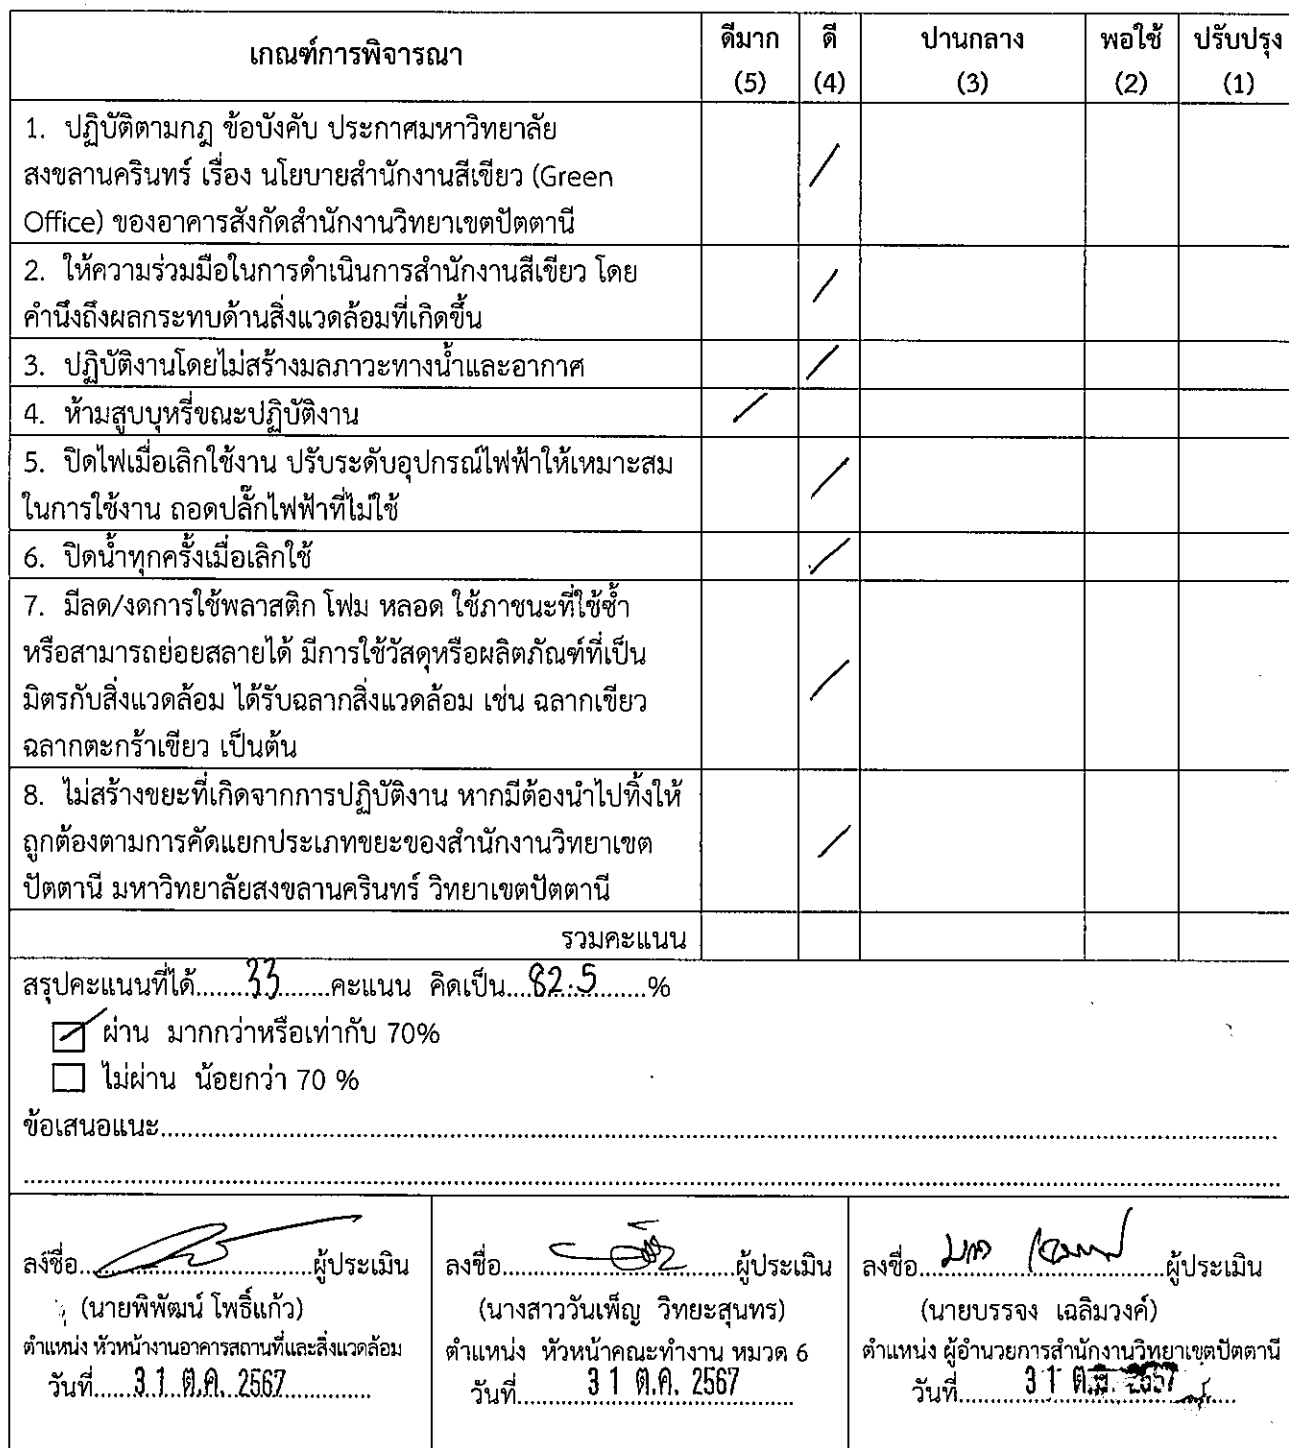 เกณฑ์การพิจารณา ดีมาก ดี ปานกลาง พอใช้ ปรับปรุง
(5) (4) (3) (2) (1)
1. ปฏิบัติตามกฎ ข้อบังคับ ประกาศมหาวิทยาลัย
สงขลานครินทร์ เรื่อง นโยบายสำนักงานสีเขียว (Green
Office) ของอาคารสังกัดสำนักงานวิทยาเขตปัตตานี
2. ให้ความร่วมมือในการดำเนินการสำนักงานสีเขียว โดย
คำนึงถึงผลกระทบด้านสิ่งแวดล้อมที่เกิดขึ้น
3. ปฏิบัติงานโดยไม่สร้างมลภาวะทางน้ำและอากาศ
4. ห้ามสูบบุหรี่ขณะปฏิบัติงาน
5. ปิดไฟเมื่อเลิกใช้งาน ปรับระดับอุปกรณ์ไฟฟ้าให้เหมาะสม
ในการใช้งาน ถอดปลั๊กไฟฟ้าที่ไม่ใช้
6. ปิดน้ำทุกครั้งเมื่อเลิกใช้
7. มีลด/งดการใช้พลาสติก โฟม หลอด ใช้ภาชนะที่ใช้ซ้ำ
หรือสามารถย่อยสลายได้ มีการใช้วัสดุหรือผลิตภัณฑ์ที่เป็น
มิตรกับสิ่งแวดล้อม ได้รับฉลากสิ่งแวดล้อม เช่น ฉลากเขียว
ฉลากตะกร้าเขียว เป็นต้น
8. ไม่สร้างขยะที่เกิดจากการปฏิบัติงาน หากมีต้องนำไปทิ้งให้
ถูกต้องตามการคัดแยกประเภทขยะของสำนักงานวิทยาเขต
ปัตตานี มหาวิทยาลัยสงขลานครินทร์ วิทยาเขตปัตตานี
รวมคะแนน
สรุปคะแนนที่ได้........33........คะแนน คิดเป็น....82.5.......%
ผ่าน มากกว่าหรือเท่ากับ 70%
ไม่ผ่าน น้อยกว่า 70 %
ข้อเสนอแนะ
ลงชื่อ ผู้ประเมิน ลงชื่อ ผู้ประเมิน ลงชื่อ ผู้ประเมิน
(นายพิพัฒน์ โพธิ์แก้ว) (นางสาววันเพ็ญ วิทยะสุนทร) (นายบรรจง เฉลิมวงค์)
ตำแหน่ง หัวหน้างานอาคารสถานที่และสิ่งแวดล้อม ตำแหน่ง หัวหน้าคณะทำงาน หมวด 6 ตำแหน่ง ผู้อำนวยการสำนักงานวิทยาเขตปัตตานี
วันที่ 3 1 ต.ค. 2567 วันที่ 3 1 ต.ค. 2567 วันที่ 3 1